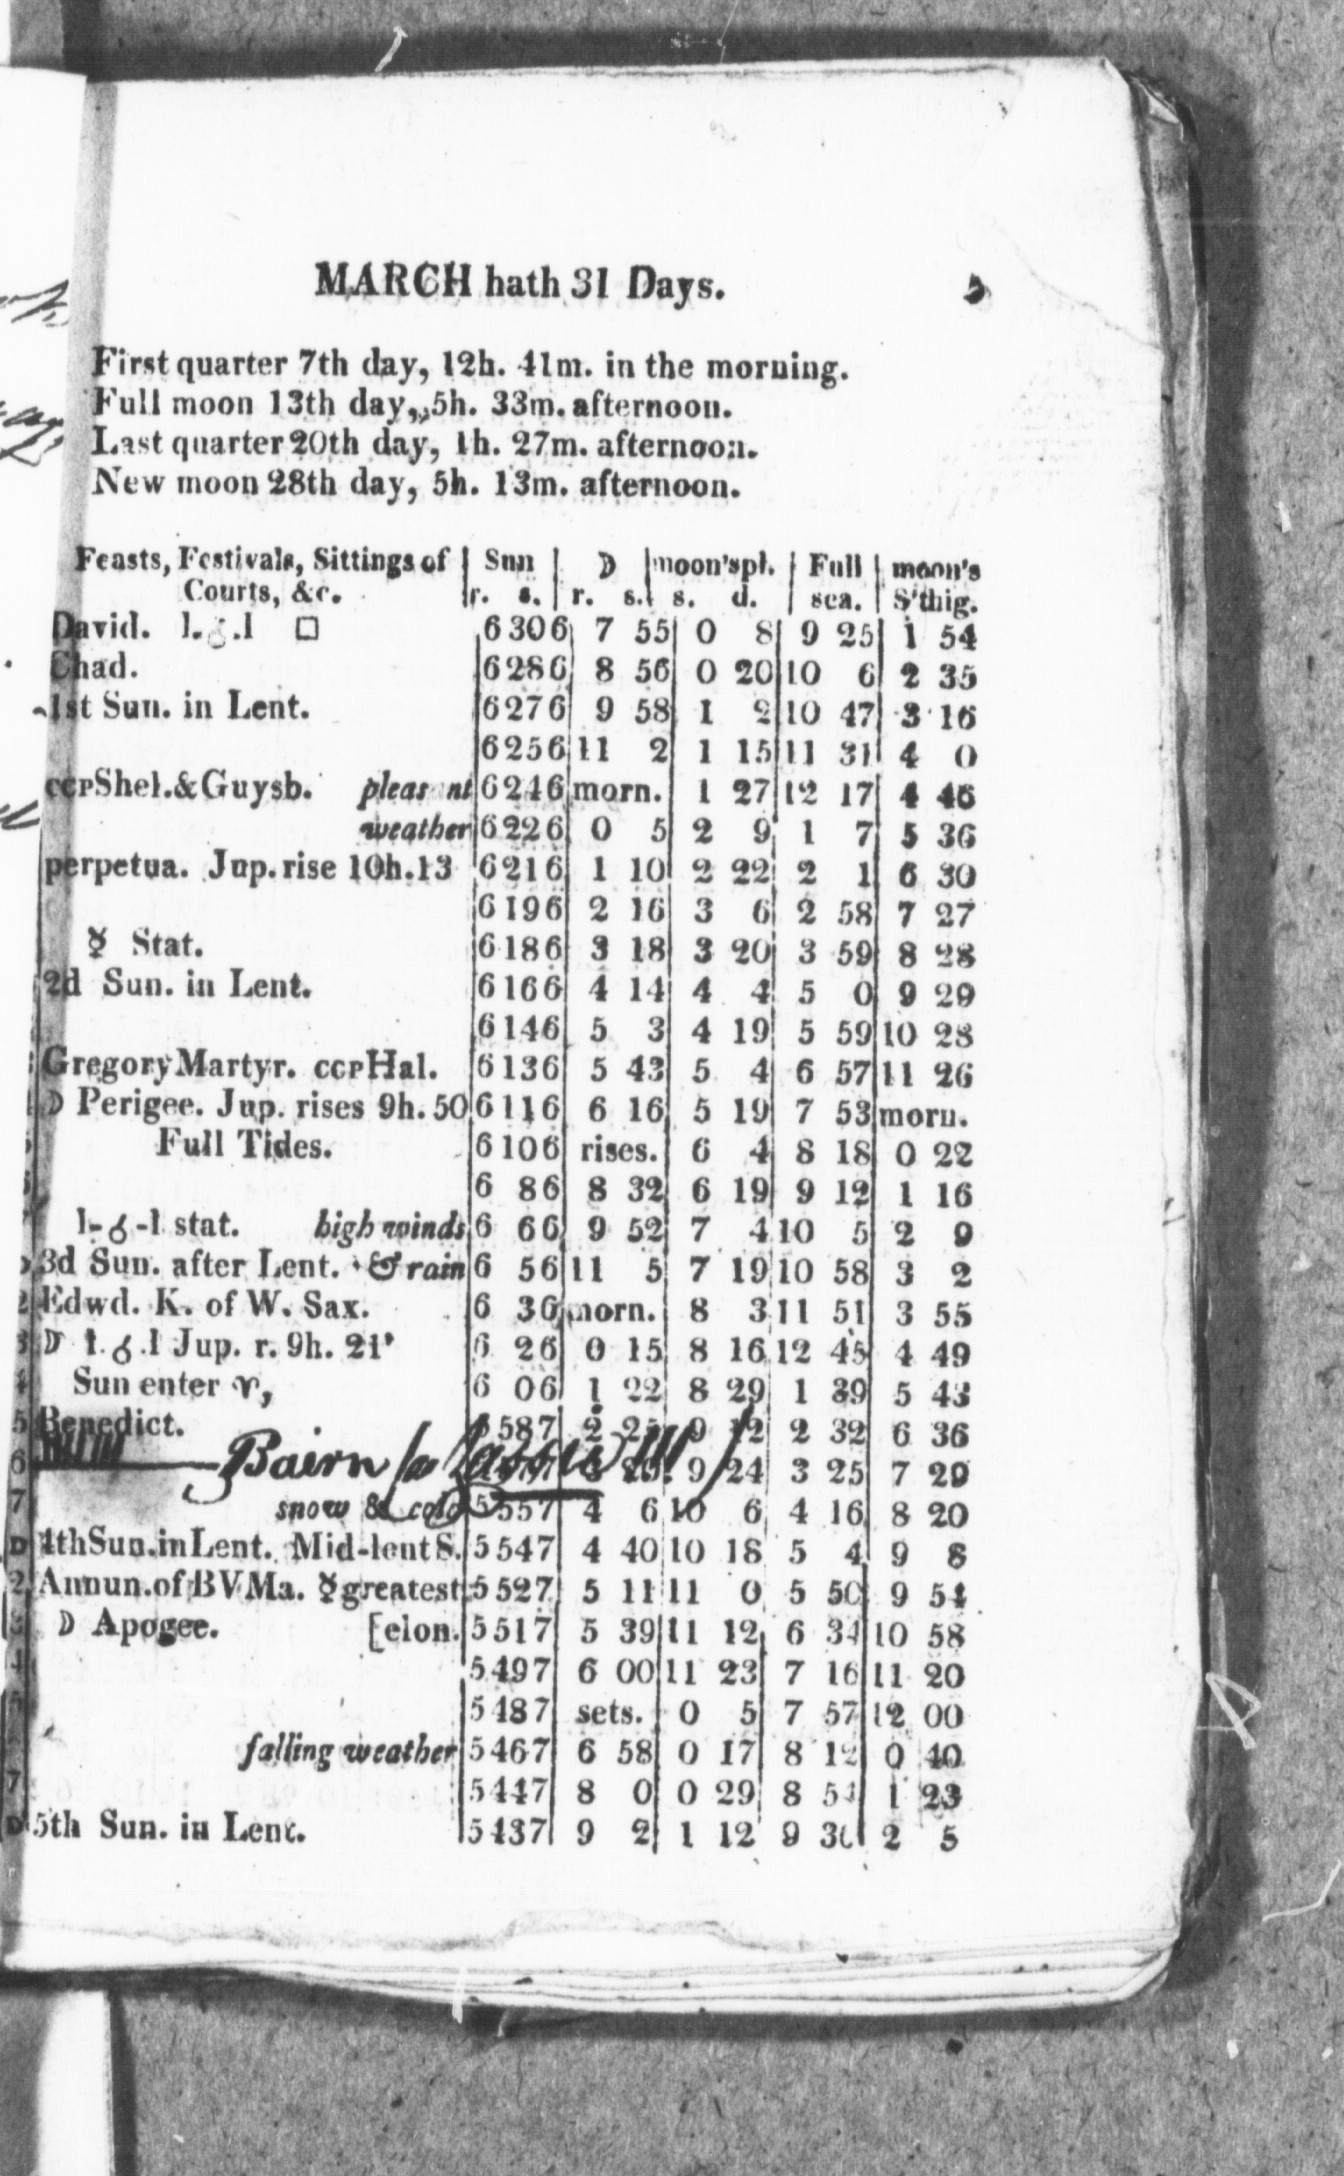 MARCH hath 31 Days. 5
First quarter 7th day, 12h. 41m. in the morning.
Full moon 13th day, 5h. 33m. afternoon.
Last quarter 20th day, 1h. 27m. afternoon.
New moon 28th day, 5h. 13m. afternoon.
Feasts, Festivals, Sittings of | Sun | ☽ | moon's pl. | Full | moon's
Courts, &c. | r. s. | r. s. | s. d. | sea. | S'thig.
David. □ 6 30 6 7 55 0 8 9 25 1 54
Chad. 6 28 6 8 56 0 20 10 6 2 35
1st Sun. in Lent. 6 27 6 9 58 1 2 10 47 3 16
6 25 6 11 2 1 15 11 31 4 0
ccp Shel. & Guysb. pleasant 6 24 6 morn. 1 27 12 17 4 46
weather 6 22 6 0 5 2 9 1 7 5 36
perpetua. Jup. rise 10h. 13 6 21 6 1 10 2 22 2 1 6 30
6 19 6 2 16 3 6 2 58 7 27
☿ Stat. 6 18 6 3 18 3 20 3 59 8 28
2d Sun. in Lent. 6 16 6 4 14 4 4 5 0 9 29
6 14 6 5 3 4 19 5 59 10 28
Gregory Martyr. ccp Hal. 6 13 6 5 43 5 4 6 57 11 26
☽ Perigee. Jup. rises 9h. 50 6 11 6 6 16 5 19 7 53 morn.
Full Tides. 6 10 6 rises. 6 4 8 18 0 22
6 8 6 8 32 6 19 9 12 1 16
stat. high winds 6 6 6 9 52 7 4 10 5 2 9
3d Sun. after Lent. & rain 6 5 6 11 5 7 19 10 58 3 2
Edwd. K. of W. Sax. 6 3 6 morn. 8 3 11 51 3 55
☽ Jup. r. 9h. 21' 6 2 6 0 15 8 16 12 45 4 49
Sun enter ♈, 6 0 6 1 22 8 29 1 39 5 43
Benedict. 58 7 2 9 12 2 32 6 36
Bairn 9 24 3 25 7 29
snow & cold 5 55 7 4 6 10 6 4 16 8 20
4th Sun. in Lent. Mid-lent S. 5 54 7 4 40 10 18 5 4 9 8
Annun. of BV Ma. ☿ greatest 5 52 7 5 11 11 0 5 50 9 54
☽ Apogee. [elon. 5 51 7 5 39 11 12 6 34 10 58
5 49 7 6 00 11 23 7 16 11 20
5 48 7 sets. 0 5 7 57 12 00
falling weather 5 46 7 6 58 0 17 8 12 0 40
5 44 7 8 0 0 29 8 54 1 23
5th Sun. in Lent. 5 43 7 9 2 1 12 9 36 2 5